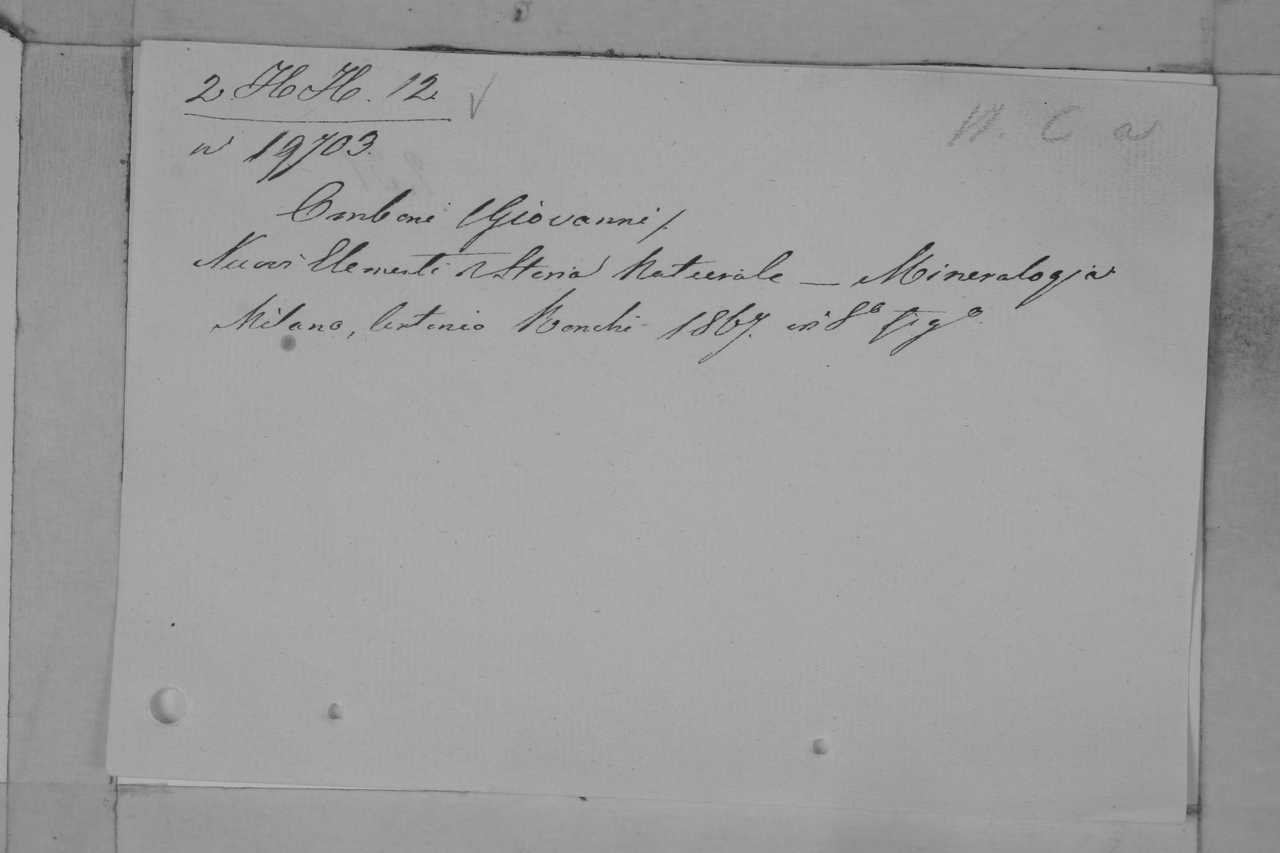 2. H H. 12
n° 19703.
W. C a
Omboni (Giovanni)
Nuovi Elementi di Storia Naturale — Mineralogia
Milano, Antonio Ronchi 1867. in 8° fig°